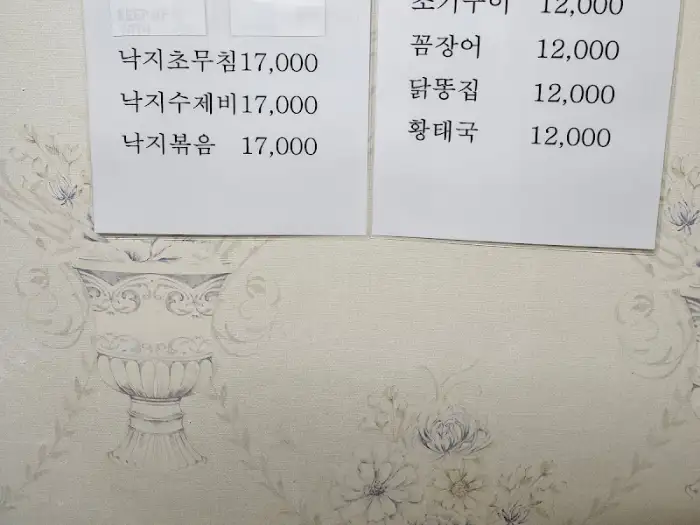 낙지초무침17,000
낙지수제비17,000
낙지볶음 17,000
12,000
꼼장어 12,000
닭똥집 12,000
황태국 12,000